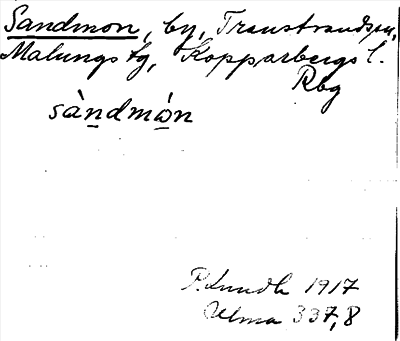 Sandmon, by, Transtrands sn,
Malungs tg, Kopparbergs l.
Rbg
sàndmo̱n
P. Lundh 1917
Ulma 337,8